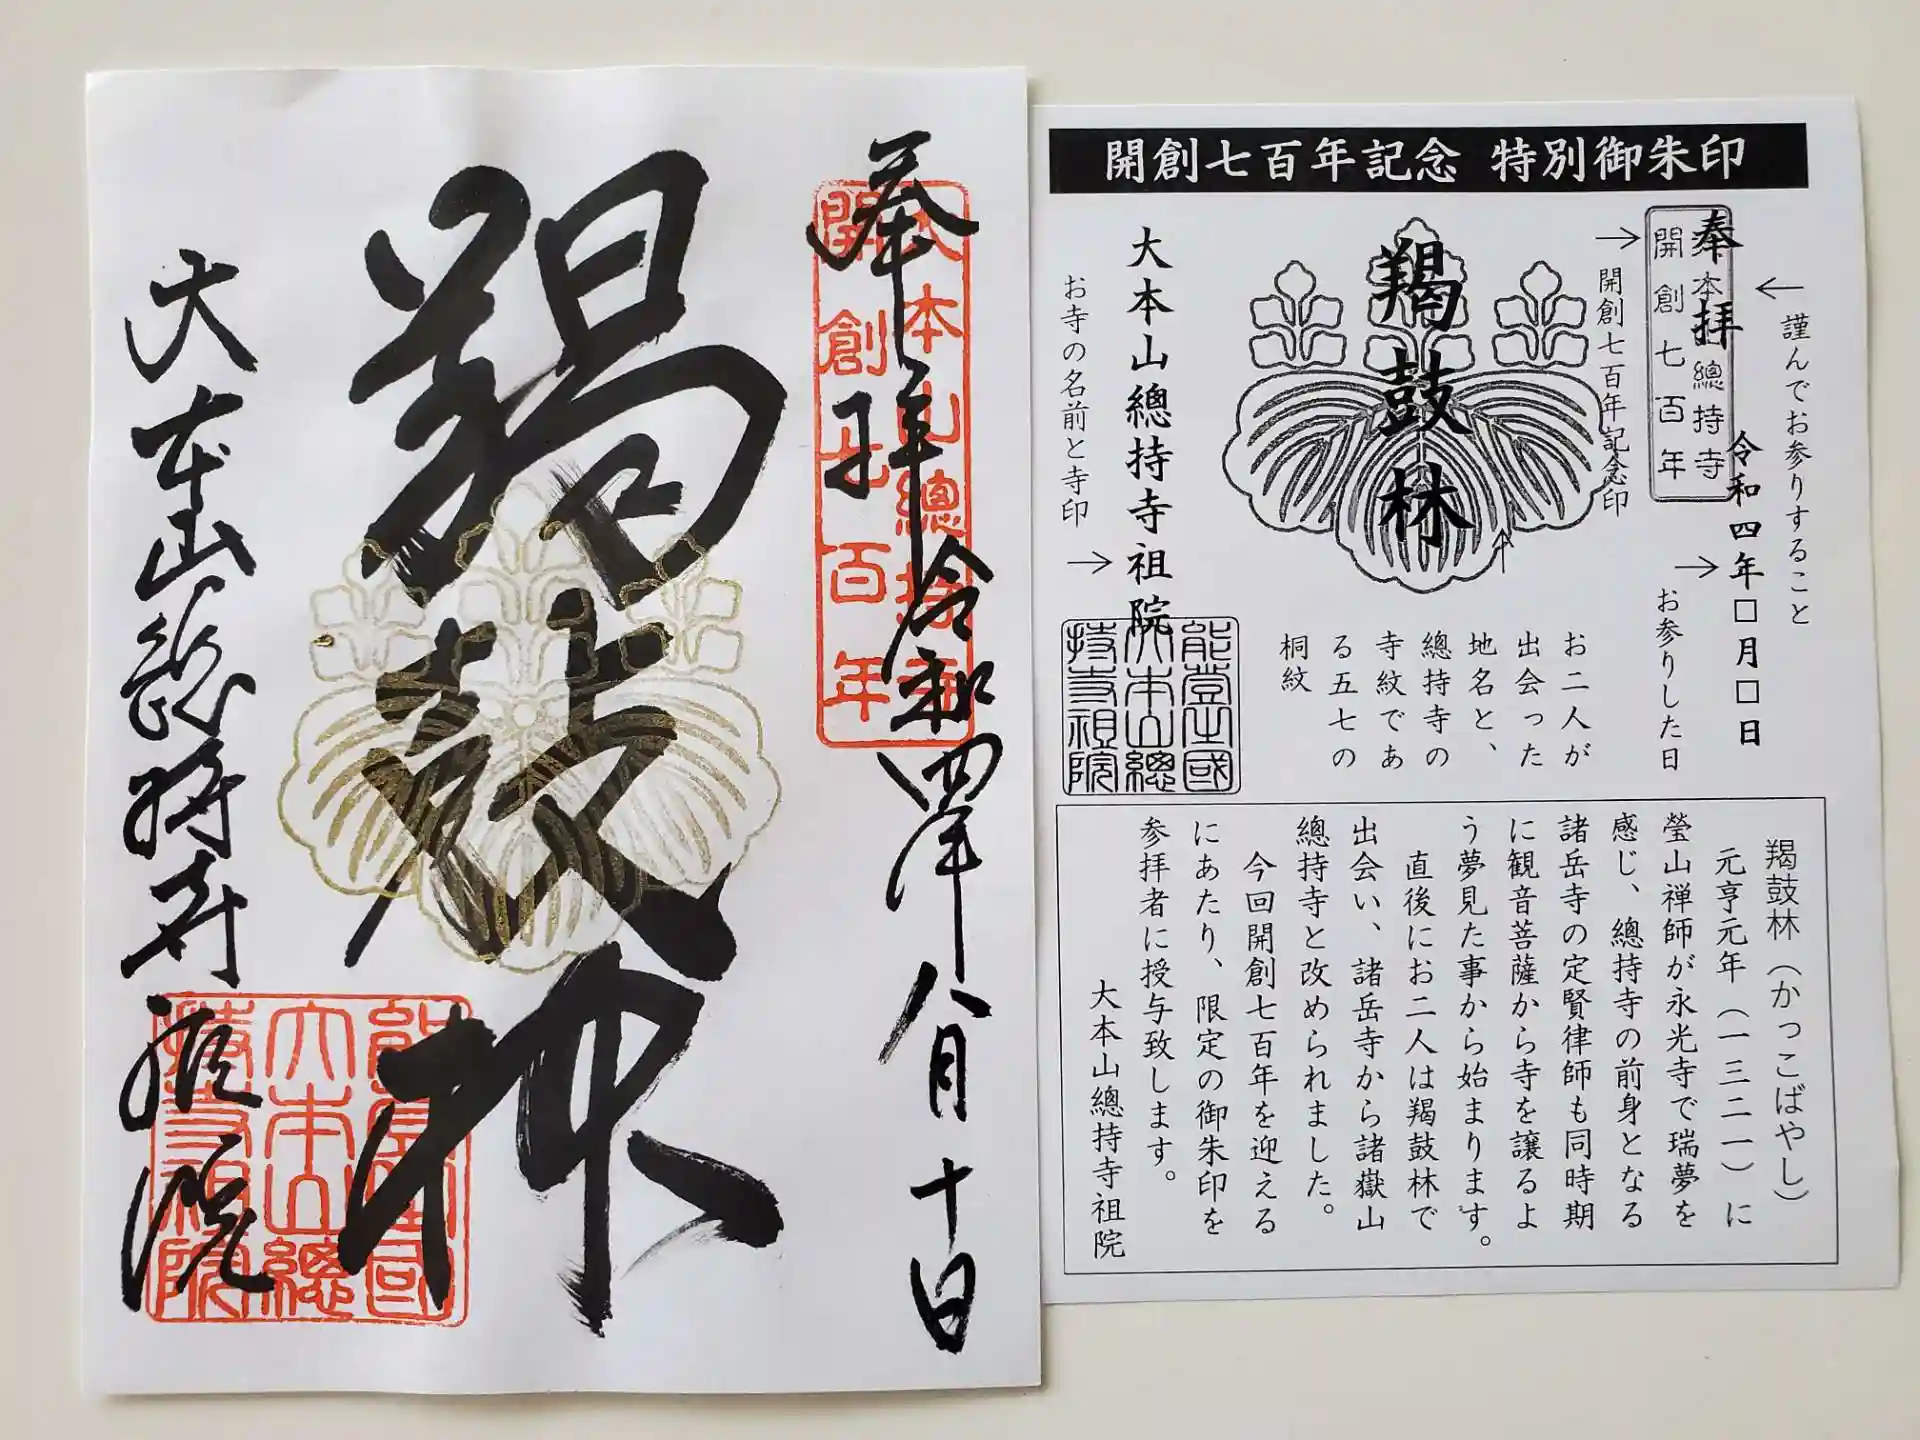 奉拝
令和四年八月十日
大本山總持寺
開創七百年
羯鼓林
大本山總持寺祖院
能登國
大本山總
持寺祖院
開創七百年記念 特別御朱印
謹んでお参りすること
奉拝
令和四年□月□日
お参りした日
大本山總持寺
開創七百年
開創七百年記念印
羯鼓林
お二人が
出会った
地名と、
總持寺の
寺紋であ
る五七の
桐紋
大本山總持寺祖院
お寺の名前と寺印
能登國
大本山總
持寺祖院
羯鼓林（かっこばやし）
元亨元年（一三二一）に
瑩山禅師が永光寺で瑞夢を
感じ、總持寺の前身となる
諸岳寺の定賢律師も同時期
に観音菩薩から寺を譲るよ
う夢見た事から始まります。
直後にお二人は羯鼓林で
出会い、諸岳寺から諸嶽山
總持寺と改められました。
今回開創七百年を迎える
にあたり、限定の御朱印を
参拝者に授与致します。
大本山總持寺祖院